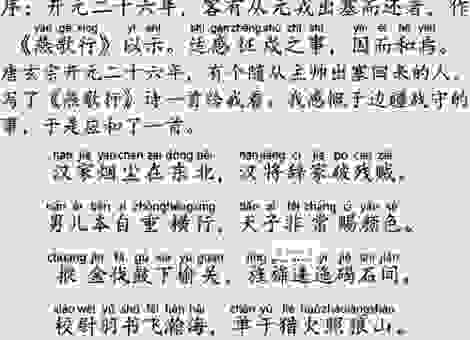 序：开元二十六年，客有从元戎出塞而还者，作
yān gē xíng yǐ shì gǎn zhēng shù zhī shì yīn ér hè yān
《燕歌行》以示。适感征戍之事，因而和焉。
唐玄宗开元二十六年，有个随从主帅出塞回来的人，
写了《燕歌行》诗一首给我看。我感慨于边疆战守的
事，于是应和了一首。
hàn jiā yān chén zài dōng běi hàn jiàng cí jiā pò cán zéi
汉家烟尘在东北，汉将辞家破残贼。
nán ér běn zì zhòng héng xíng tiān zǐ fēi cháng cì yán sè
男儿本自重横行，天子非常赐颜色。
chuāng jīn fá gǔ xià yú guān jīng yí jié shí jiān
摐金伐鼓下榆关，旌旆逶迤碣石间。
xiào wèi yǔ shū fēi hàn hǎi chán yú liè huǒ zhào láng shān
校尉羽书飞瀚海，单于猎火照狼山。